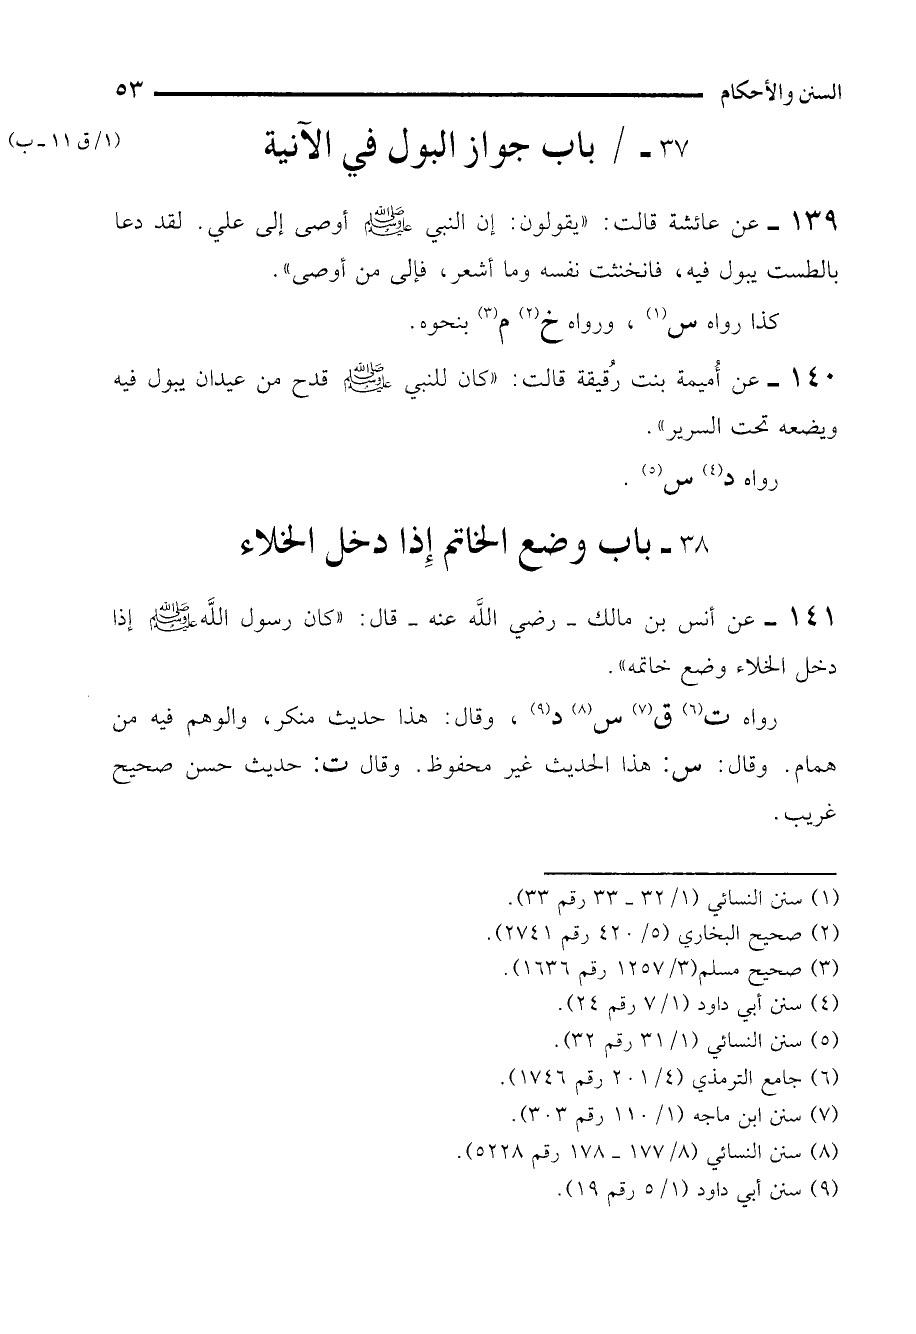 السنن والأحكام ٥٣
٣٧ ـ / باب جواز البول في الآنية (١/ ق ١١ ـ ب)
١٣٩ ـ عن عائشة قالت: «يقولون: إن النبي ﷺ أوصى إلى علي. لقد دعا
بالطست يبول فيه، فانخنثت نفسه وما أشعر، فإلى من أوصى».
كذا رواه س(١) ، ورواه خ(٢) م(٣) بنحوه.
١٤٠ ـ عن أُميمة بنت رُقيقة قالت: «كان للنبي ﷺ قدح من عيدان يبول فيه
ويضعه تحت السرير».
رواه د(٤) س(٥) .
٣٨ ـ باب وضع الخاتم إِذا دخل الخلاء
١٤١ ـ عن أنس بن مالك ـ رضي اللَّه عنه ـ قال: «كان رسول اللَّه ﷺ إذا
دخل الخلاء وضع خاتمه».
رواه ت(٦) ق(٧) س(٨) د(٩) ، وقال: هذا حديث منكر، والوهم فيه من
همام. وقال: س: هذا الحديث غير محفوظ. وقال ت: حديث حسن صحيح
غريب.
(١) سنن النسائي (١/ ٣٢ ـ ٣٣ رقم ٣٣).
(٢) صحيح البخاري (٥/ ٤٢٠ رقم ٢٧٤١).
(٣) صحيح مسلم(٣/ ١٢٥٧ رقم ١٦٣٦).
(٤) سنن أبي داود (١/ ٧ رقم ٢٤).
(٥) سنن النسائي (١/ ٣١ رقم ٣٢).
(٦) جامع الترمذي (٤/ ٢٠١ رقم ١٧٤٦).
(٧) سنن ابن ماجه (١/ ١١٠ رقم ٣٠٣).
(٨) سنن النسائي (٨/ ١٧٧ ـ ١٧٨ رقم ٥٢٢٨).
(٩) سنن أبي داود (١/ ٥ رقم ١٩).